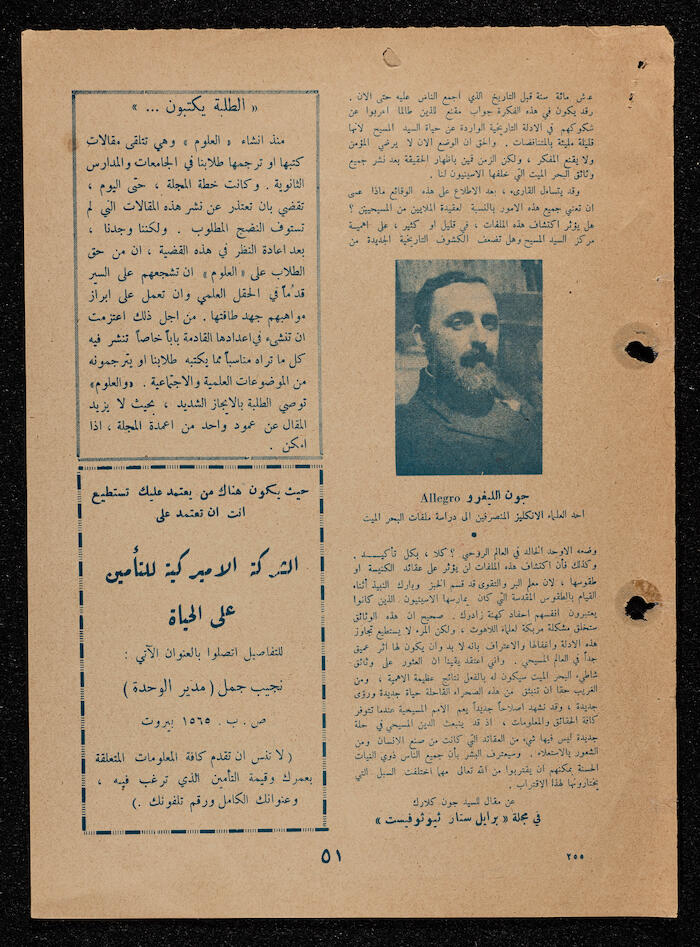 عاش مائة سنة قبل التاريخ الذي اجمع الناس عليه حتى الآن .
وقد يكون في هذه الفكرة جواب مقنع للذين طالما اعربوا عن
شكوكهم في الادلة التاريخية الواردة عن حياة السيد المسيح لانها
قليلة مليئة بالمتناقضات . والحق ان الوضع الان لا يرضي المؤمن
ولا يقنع المفكر ، ولكن الزمن قمين باظهار الحقيقة بعد نشر جميع
وثائق البحر الميت التي خلفها الاسينيون لنا .
وقد يتساءل القارىء ، بعد الاطلاع على هذه الوقائع ماذا عسى
ان تعني جميع هذه الامور بالنسبة لعقيدة الملايين من المسيحيين ؟
هل يؤثر اكتشاف هذه الملفات ، في قليل او كثير ، على اهمية
مركز السيد المسيح وهل تضعف الكشوف التاريخية الجديدة من
جون الليغرو Allegro
احد العلماء الانكليز المنصرفين الى دراسة ملفات البحر الميت
وضعه الاوحد الخالد في العالم الروحي ؟ كلا ، بكل تأكيـــد .
وكذلك فأن اكتشاف هذه الملفات لن يؤثر على عقائد الكنيسة او
طقوسها ، لان معلم البر والتقوى قد قسم الخبز وبارك النبيذ أثناء
القيام بالطقوس المقدسة التي كان يمارسها الاسينيون الذين كانوا
يعتبرون انفسهم احفاد كهنة زادوك . صحيح ان هذه الوثائق
ستخلق مشكلة مربكة لعلماء اللاهوت ، ولكن المرء لا يستطيع تجاوز
هذه الادلة واغفالها والاعتراف بانه لا بد وان يكون لها اثر عميق
جداً في العالم المسيحي . واني اعتقد يقينا ان العثور على وثائق
شاطيء البحر الميت سيكون له بالفعل نتائج عظيمة الاهمية ، ومن
الغريب حقا ان تنبثق من هذه الصحراء القاحلة حياة جديدة ورؤى
جديدة ، وقد نشهد اصلاحاً جديداً يعم الامم المسيحية عندما تتوفر
كافة الحقائق والمعلومات ، اذ قد ينبعث الدين المسيحي في حلة
جديدة ليس فيها شيء من العقائد التي كانت من صنع الانسان ومن
الشعور بالاستعلاء . وسيعترف البشر بأن جميع الناس ذوي النيات
الحسنة يمكنهم ان يقتربوا من الله تعالى مهما اختلفت السبل التي
يختارونها لهذا الاقتراب .
عن مقال للسيد جون كلارك
في مجلة « برايل ستار ثيوثوفيست »
٢٥٥
« الطلبة يكتبون ... »
منذ انشاء « العلوم » وهي تتلقى مقالات
كتبها او ترجمها طلابنا في الجامعات والمدارس
الثانوية . وكانت خطة المجلة ، حتى اليوم ،
تقضي بان تعتذر عن نشر هذه المقالات التي لم
تستوف النضج المطلوب . ولكننا وجدنا ،
بعد اعادة النظر في هذه القضية ، ان من حق
الطلاب على « العلوم » ان تشجعهم على السير
قدُماً في الحقل العلمي وان تعمل على ابراز
مواهبهم جهد طاقتها . من اجل ذلك اعتزمت
ان تنشىء في اعدادها القادمة باباً خاصاً تنشر فيه
كل ما تراه مناسباً مما يكتبه طلابنا او يترجمونه
من الموضوعات العلمية والاجتماعية . «والعلوم»
توصي الطلبة بالايجاز الشديد ، بحيث لا يزيد
المقال عن عمود واحد من اعمدة المجلة ، اذا
امكن .
حيث يكون هناك من يعتمد عليك تستطيع
انت ان تعتمد على
الشركة الاميركية للتأمين
على الحياة
للتفاصيل اتصلوا بالعنوان الآتي :
نجيب جمل ( مدير الوحدة )
ص . ب . ١٥٦٥ بيروت
( لا تنس ان تقدم كافة المعلومات المتعلقة
بعمرك وقيمة التأمين الذي ترغب فيه ،
وعنوانك الكامل ورقم تلفونك . )
٥١